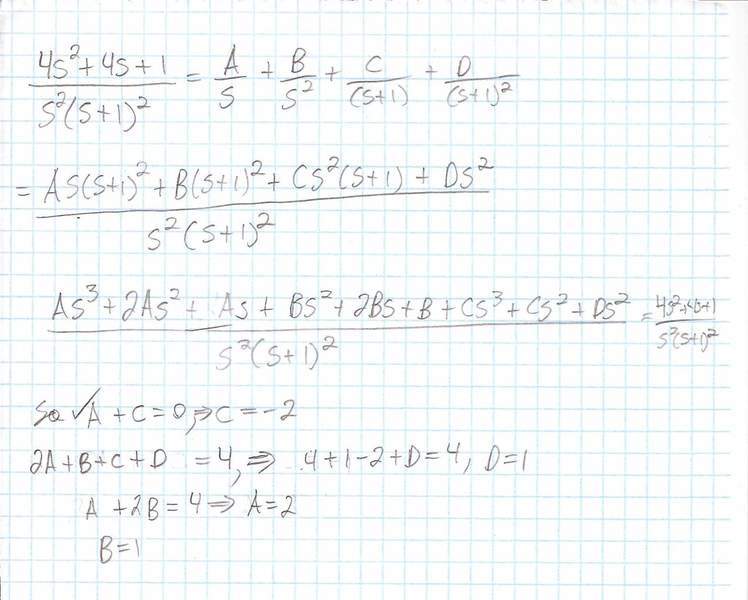 (4s²+4s+1)/(s²(s+1)²) = A/s + B/s² + C/(s+1) + D/(s+1)²
= (As(s+1)² + B(s+1)² + Cs²(s+1) + Ds²)/(s²(s+1)²)
(As³ + 2As² + As + Bs² + 2Bs + B + Cs³ + Cs² + Ds²)/(s²(s+1)²) = (4s²+4s+1)/(s²(s+1)²)
So ✓A + C = 0, ⇒ C = -2
2A + B + C + D = 4, ⇒ 4 + 1 - 2 + D = 4, D = 1
A + 2B = 4 ⇒ A = 2
B = 1